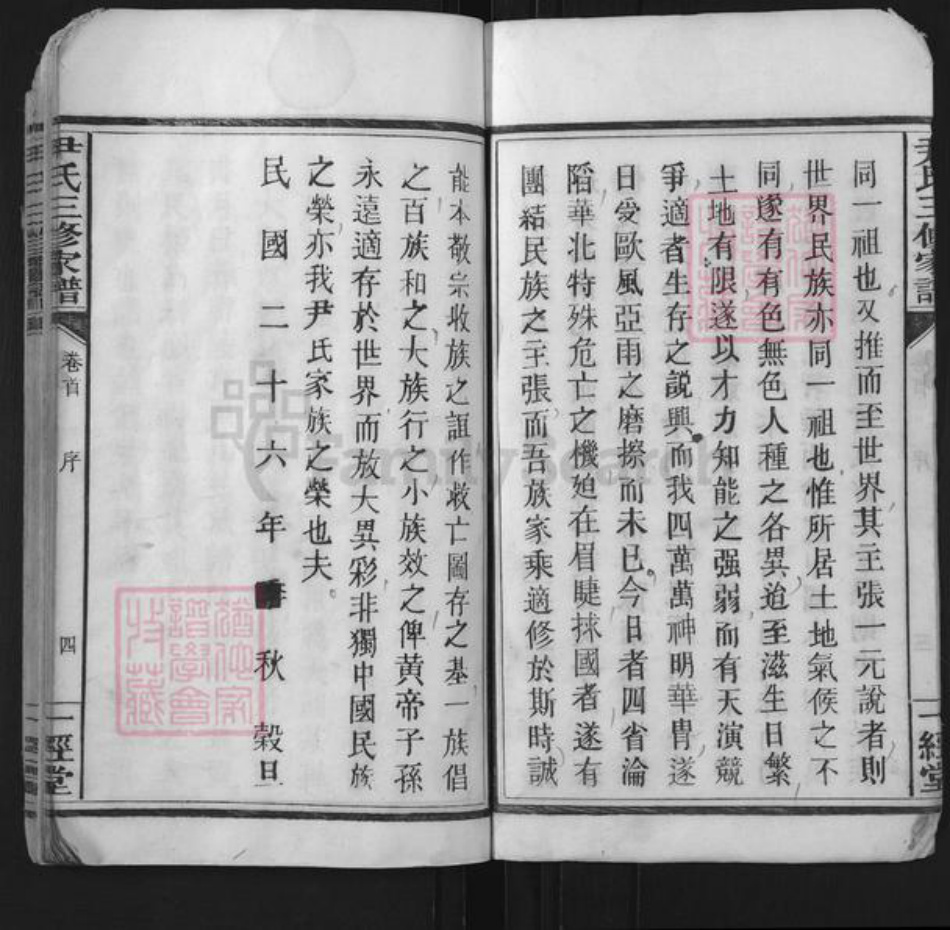 同一祖也又推而至世界其主張一元說者則
世界民族亦同一祖也惟所居土地氣候之不
同遂有有色無色人種之各異迨至滋生日繁
土地有限遂以才力知能之强弱而有天演競
爭適者生存之說興而我四萬萬神明華胄遂
日受歐風亞雨之磨擦而未已今日者四省淪
陷華北特殊危亡之機廹在眉睫捄國者遂有
團結民族之主張而吾族家乘適修於斯時誠
能本敬宗收族之誼作救亡圖存之基一族倡
之百族和之大族行之小族效之俾黄帝子孫
永遠適存於世界而放大異彩非獨中國民族
之榮亦我尹氏家族之榮也夫
民國二十六年季秋穀旦
尹氏三修家譜
卷首
序
四
一經堂
尹氏三修家譜
一經堂
FamilySearch